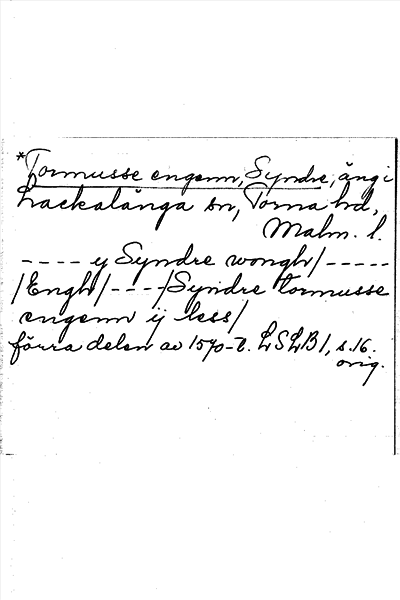 *Tormusse engenn, Syndre, äng i
Lackalänga sn, Torna hd,
Malm. l.
---- y Syndre wongh/-----
/Engh/----/Syndre tormusse
engenn ij less/
förra delen av 1570-t. LSLB1, s.16.
orig.